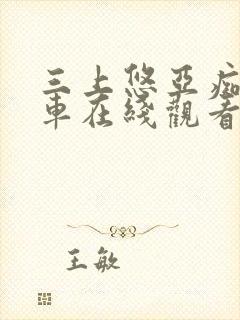 三上悠亞痴
車在綫觀看
王敏